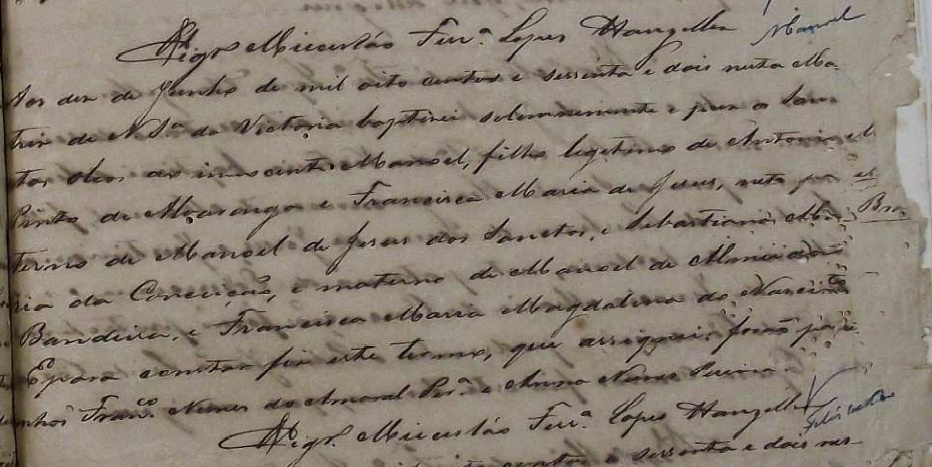 Vigr.º Miceslão Ferr.ª Lopes Wanzeller Manoel
Aos dez de Junho de mil oito centos e sessenta e dois nesta Ma-
triz de N. S.ª da Victoria baptizei solemnemente e puz os San-
tos oleos ao innocente Manoel, filho legitimo de Antonio
Pinto de Alvarenga e Francisca Maria de Jesus, neto pa-
terno de Manoel de Jesus dos Sanctos, e Sebastiana Ma-
ria da Conceição, e materno de Manoel de Almeida
Bandeira, e Francisca Maria Magdalena do Nascim.to
E para constar fiz este termo, que assignei: forão pa-
Fran.co Nunes do Amaral Per.ª e Anna Nunes Pereira
Vigr.º Miceslão Ferr.ª Lopes Wanzeller
centos e sessenta e dois nes-